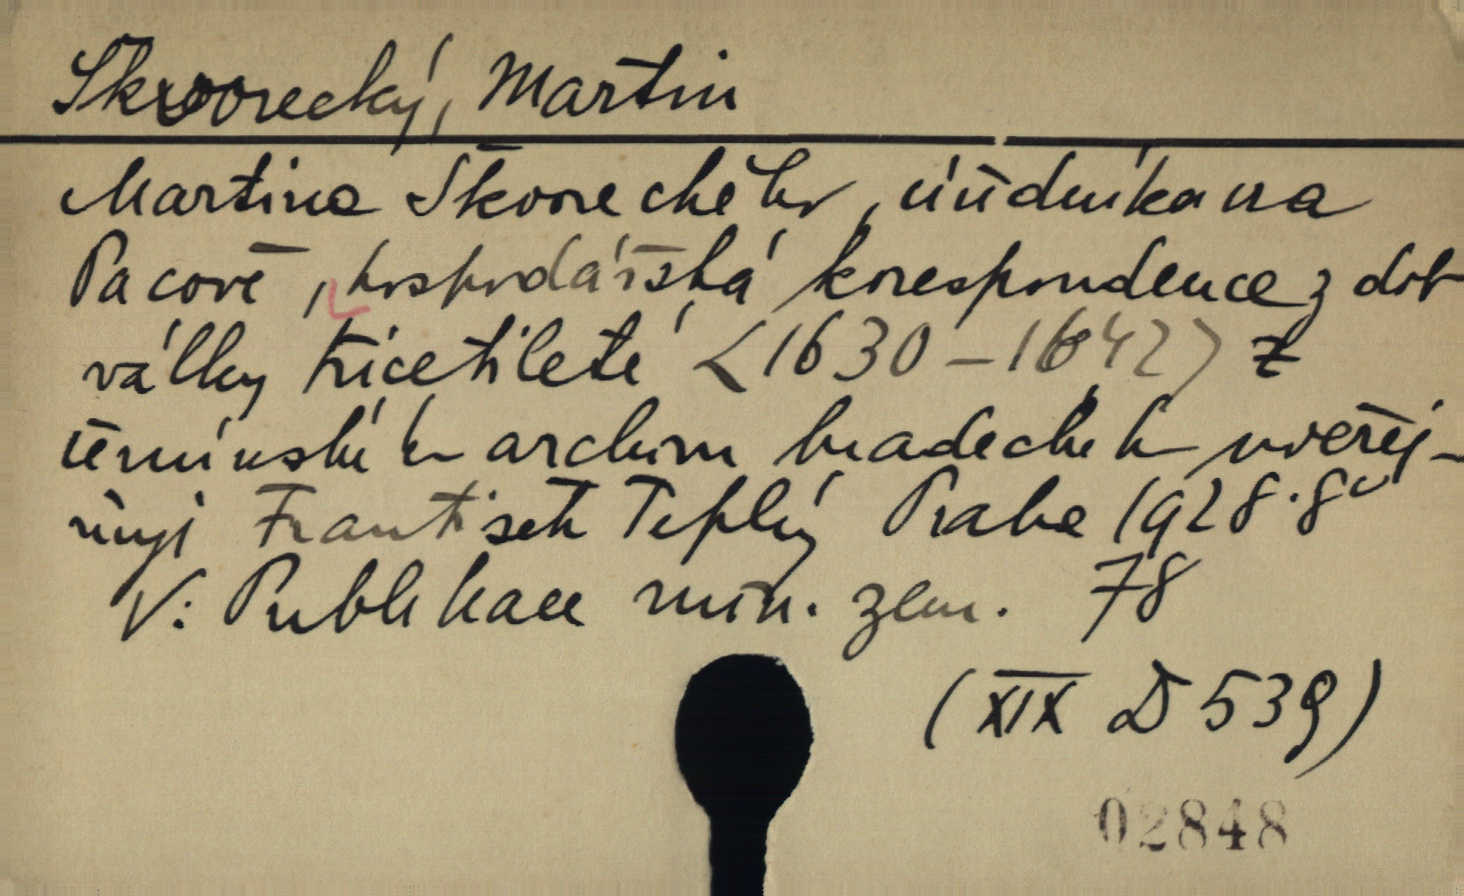 Škvorecký, Martin
Martina Škvoreckého, úředníka na
Pacově, hospodářská korespondence z dob
války třicetileté <1630-1642> z
černínského archivu hradeckého uveřej-
ňuje František Teplý Praha 1928. 8°
V: Publikace min. zem. 78
(XIX D 539)
02848